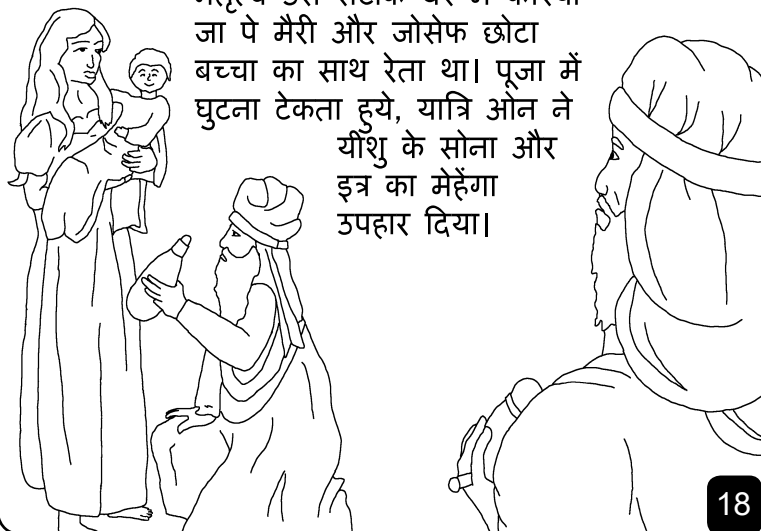 जा पे मैरी और जोसेफ छोटा
बच्चा का साथ रेता था। पूजा में
घुटना टेकता हुये, यात्रि ओन ने
यीशु के सोना और
इत्र का मेहेंगा
उपहार दिया।
18